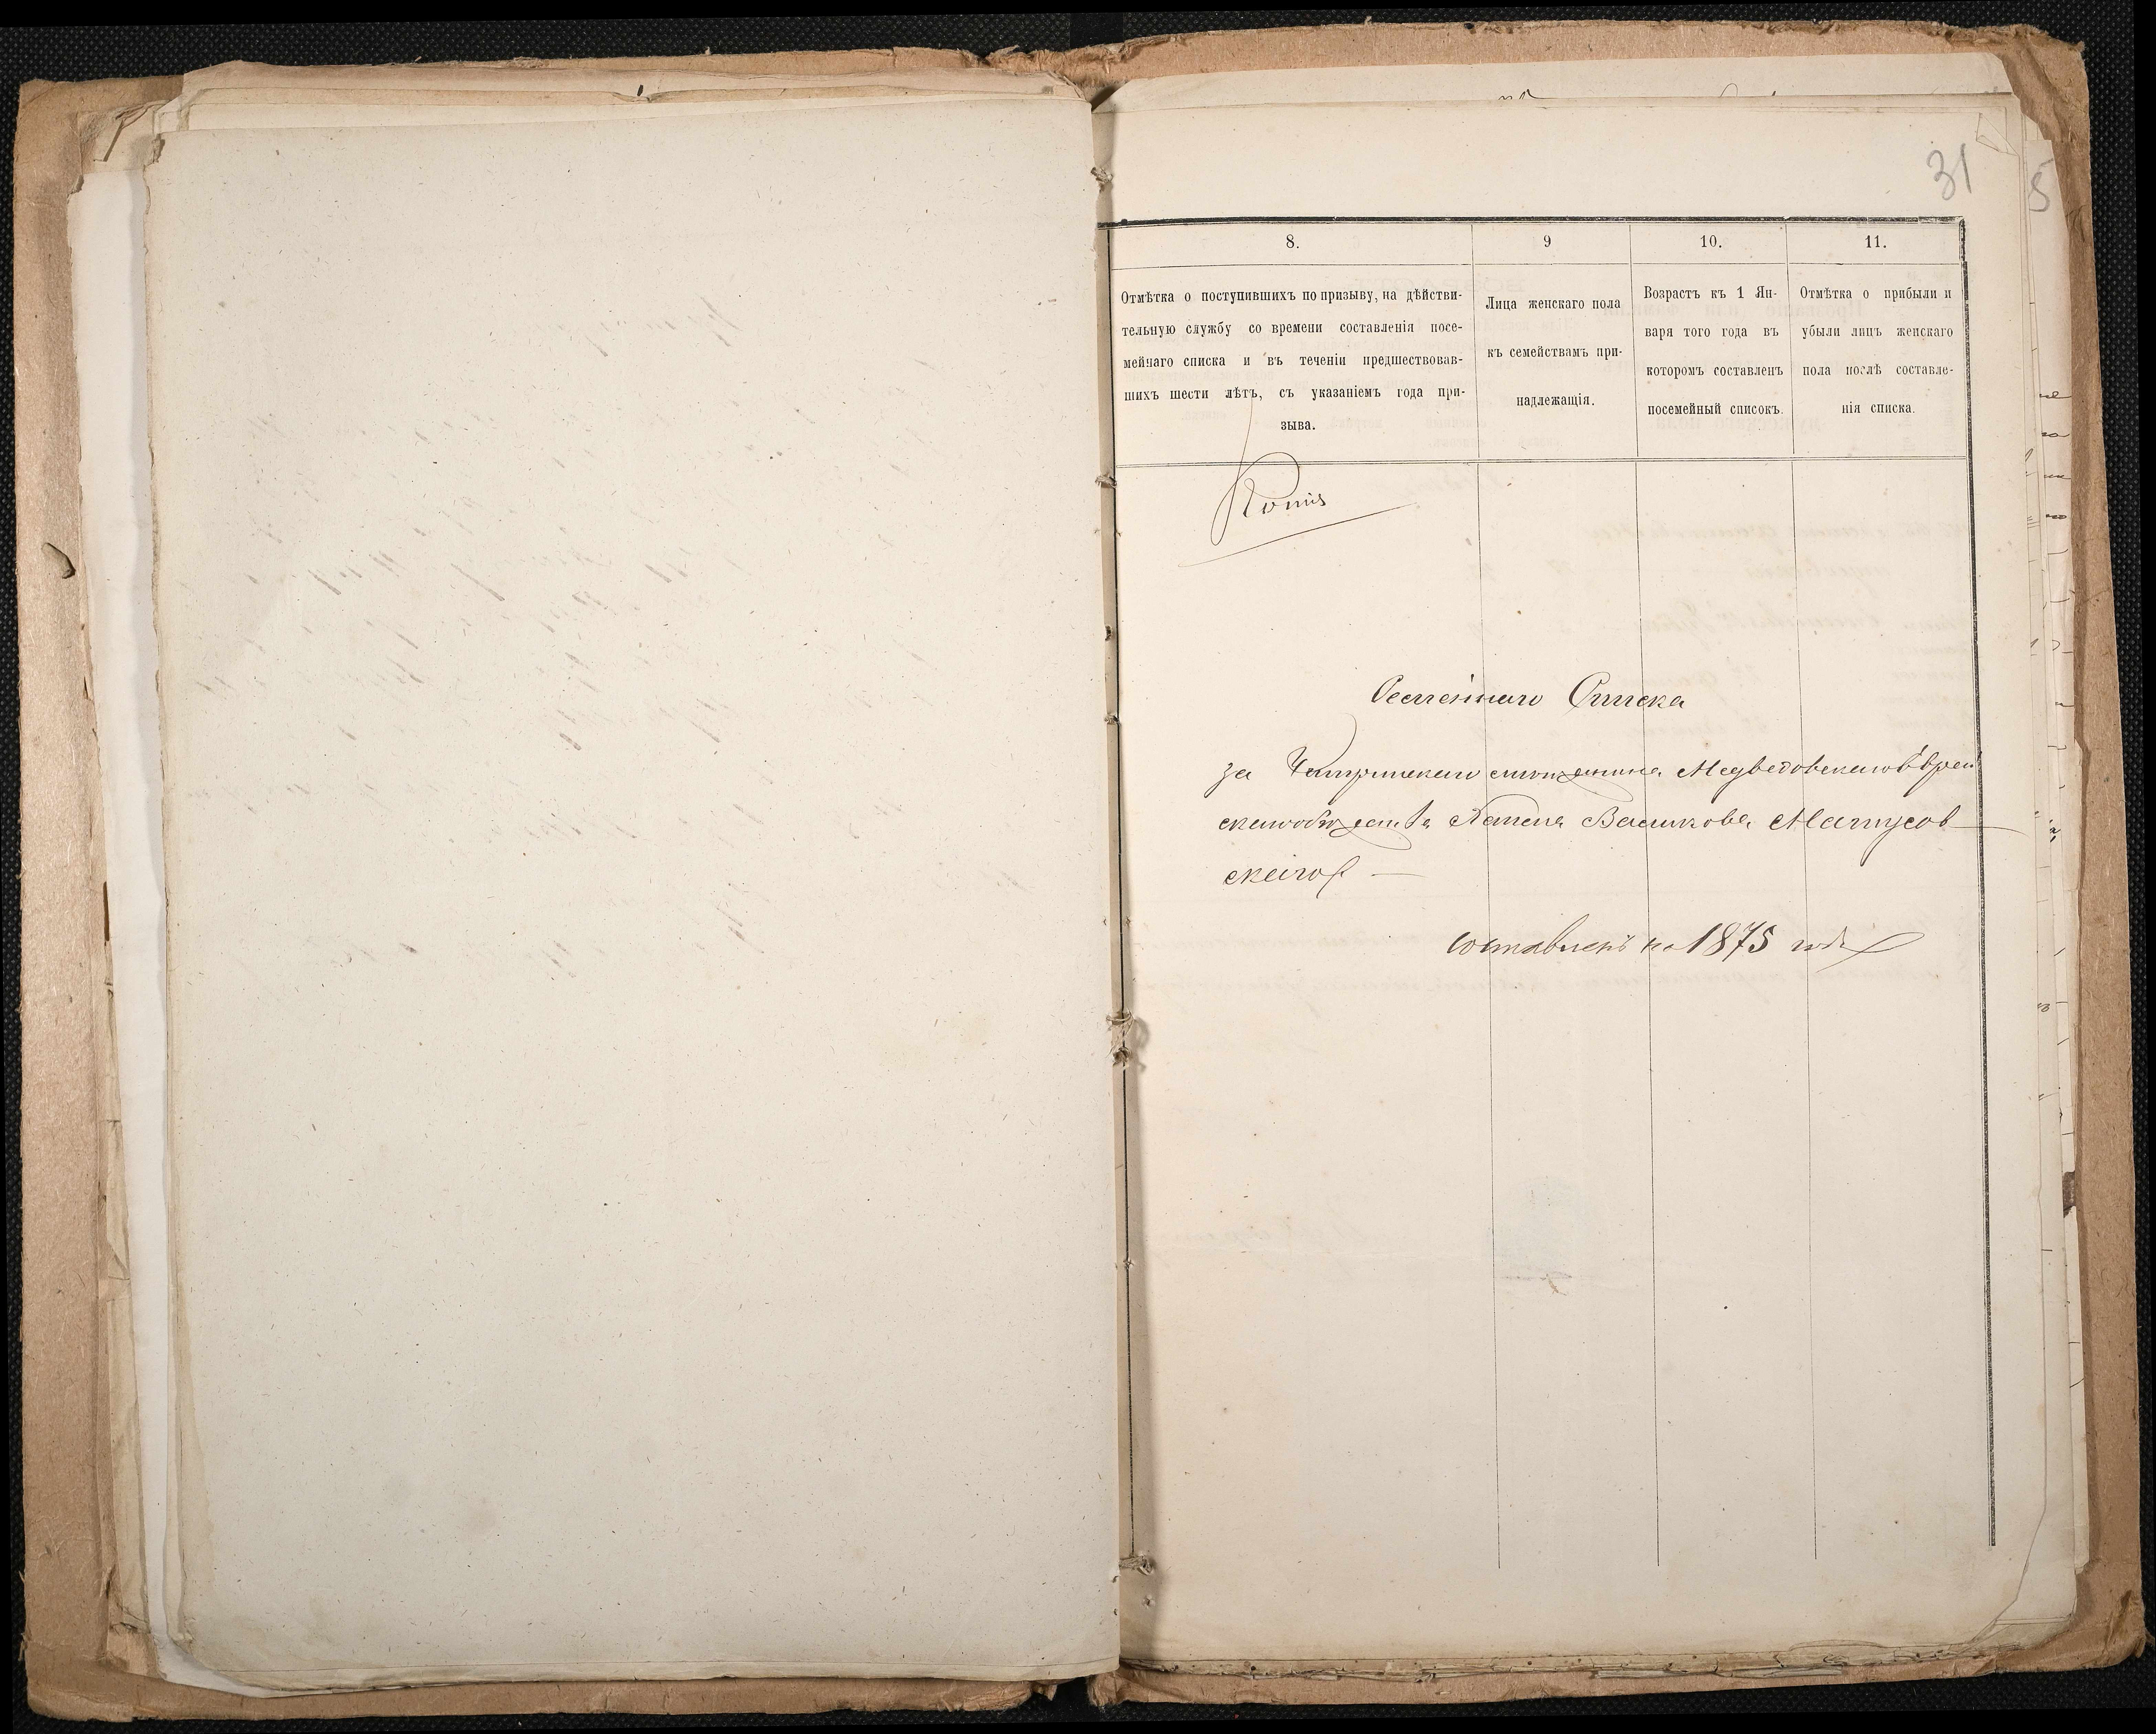 31
8.
9
10.
11.
Отмѣтка о поступившихъ по призыву, на дѣйстви-
тельную службу со времени составленія посе-
мейнаго списка и въ теченіи предшествовав-
шихъ шести лѣтъ, съ указаніемъ года при-
зыва.
Лица женскаго пола
къ семействамъ при-
надлежащія.
Возрастъ къ 1 Ян-
варя того года въ
которомъ составленъ
посемейный списокъ.
Отмѣтка о прибыли и
убыли лицъ женскаго
пола послѣ составле-
нія списка.
Копія
Семейнаго Списка
за Чигиринскаго мѣщанина Медведовскаго Еврей
скаго общества Васькова Матусов
скаго
составленъ на 1875 годъ
5